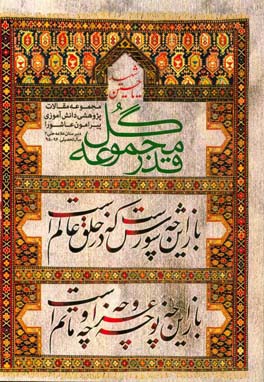 مجموعه مقالات
پژوهشی دانش آموزی
پیرامون عاشورا
دبیرستان علامه حلی ۲
قدر مجموعه گل
باز این چه شورش است که در خلق عالم است
باز این چه نوحه و چه عزا و چه ماتم است